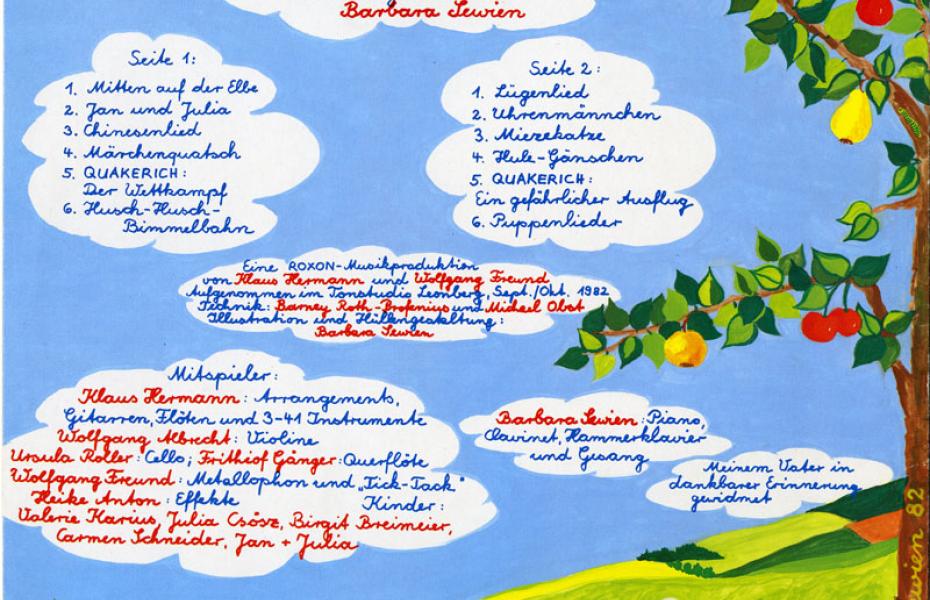 Barbara Sewien
Seite 1:
1. Mitten auf der Elbe
2. Jan und Julia
3. Chinesenlied
4. Märchenquatsch
5. QUAKERICH:
Der Wettkampf
6. Husch-Husch-
Bimmelbahn
Seite 2:
1. Lügenlied
2. Uhrenmännchen
3. Miezekatze
4. Hule-Gänschen
5. QUAKERICH:
Ein gefährlicher Ausflug
6. Puppenlieder
Eine ROXON-Musikproduktion
von Klaus Hermann und Wolfgang Freund
Aufgenommen im Tonstudio Leonberg, Sept./Okt. 1982
Technik: Barney Roth-Brofenius und Michael Obst
Illustration und Hüllengestaltung:
Barbara Sewien
Mitspieler:
Klaus Hermann: Arrangements,
Gitarren, Flöten und 3-41 Instrumente
Wolfgang Albrecht: Violine
Ursula Roller: Cello; Frithiof Gänger: Querflöte
Wolfgang Freund: Metallophon und „Tick-Tack"
Heike Anton: Effekte Kinder:
Valerie Karius, Julia Csösz, Birgit Breimeier,
Carmen Schneider, Jan + Julia
Barbara Sewien: Piano,
Clavinet, Hammerklavier
und Gesang
Meinem Vater in
dankbarer Erinnerung
gewidmet
ewien 82